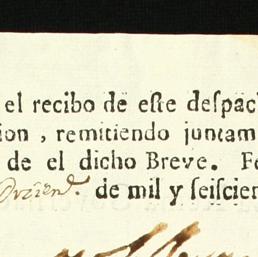 el recibo de eſte deſpac
ion , remitiendo juntam
de el dicho Breve. Fe
de mil y ſeiſcien